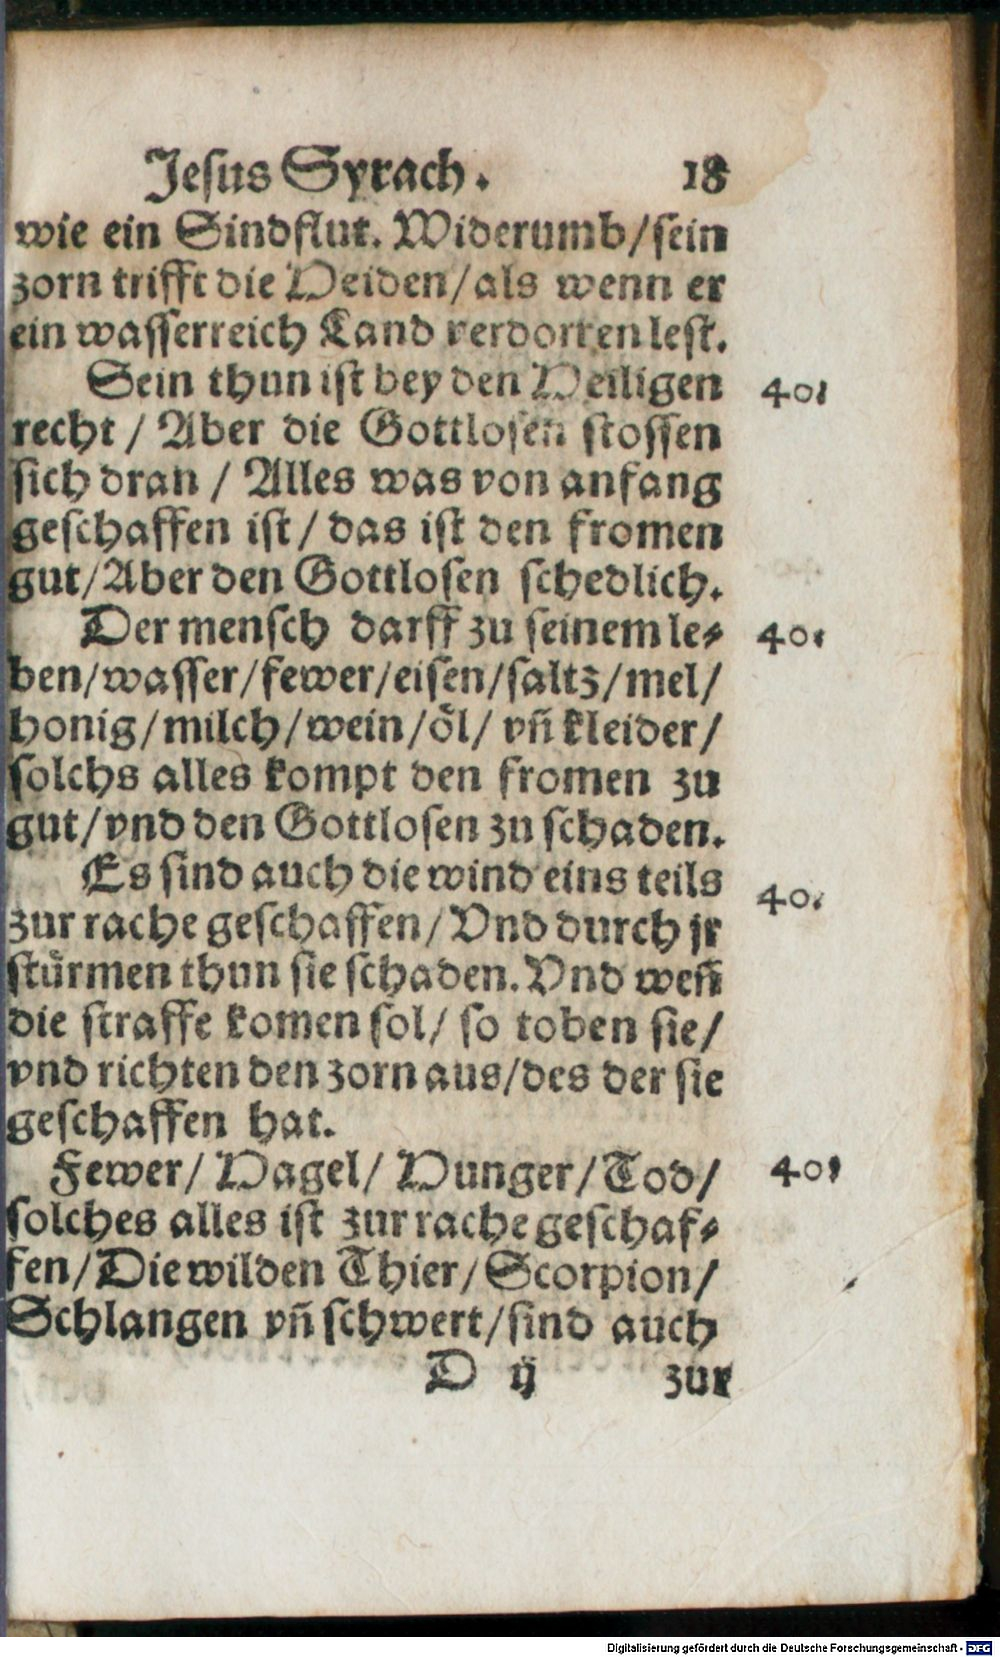 Jesus Syrach. 18
wie ein Sindflut. Widerumb/sein
zorn trifft die Heiden/als wenn er
ein wasserreich Land verdorren lest.
Sein thun ist bey den Heiligen 40.
recht / Aber die Gottlosen stossen
sich dran / Alles was von anfang
geschaffen ist/ das ist den fromen
gut/Aber den Gottlosen schedlich.
Der mensch darff zu seinem le- 40.
ben/wasser/fewer/eisen/saltz/mel/
honig/milch/wein/öl/ vñ kleider/
solchs alles kompt den fromen zu
gut/vnd den Gottlosen zu schaden.
Es sind auch die wind eins teils 40.
zur rache geschaffen/ Vnd durch jr
stürmen thun sie schaden. Vnd weñ
die straffe komen sol/ so toben sie/
vnd richten den zorn aus/des der sie
geschaffen hat.
Fewer/ Hagel/ Hunger/ Tod/ 40.
solches alles ist zur rache geschaf-
fen/Die wilden Thier/ Scorpion/
Schlangen vñ schwert/sind auch
D ij zur
Digitalisierung gefördert durch die Deutsche Forschungsgemeinschaft - DFG